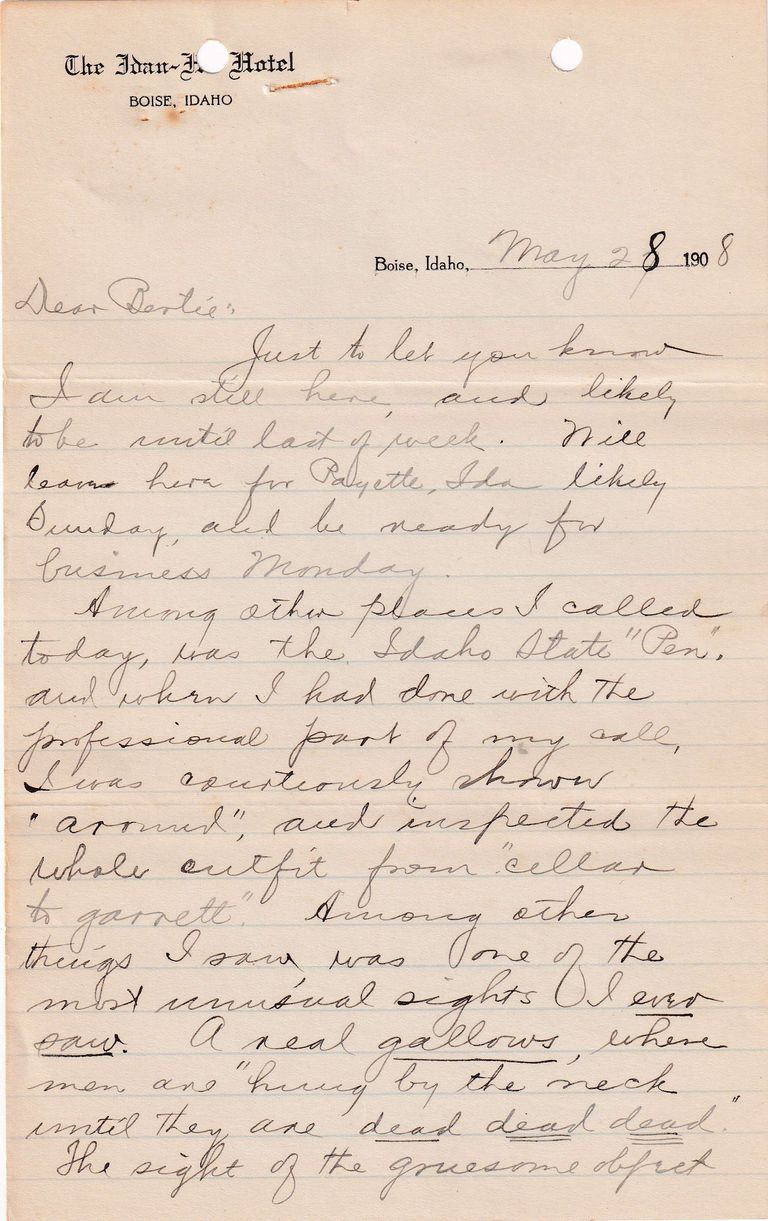 The Idan-H Hotel
BOISE, IDAHO
Boise, Idaho, May 28 1908
Dear Bertie:
Just to let you know
I am still here, and likely
to be until last of week. Will
leave here for Payette, Ida likely
Sunday, and be ready for
business Monday.
Among other places I called
today, was the Idaho State "Pen",
and when I had done with the
professional part of my call,
I was courteously shown
"around", and inspected the
whole outfit from "cellar
to garrett". Among other
things I saw, was one of the
most unusual sights I ever
saw. A real gallows, where
men are "hung by the neck
until they are dead dead dead."
The sight of the gruesome object